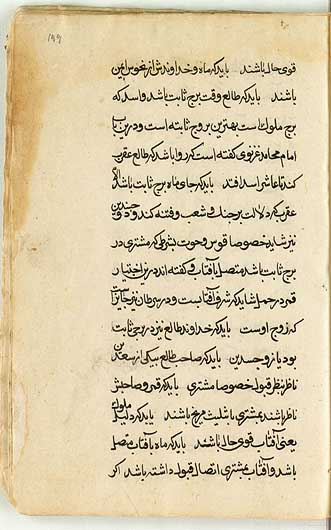 ۱۹۹
قوی حال باشند باید که ماه و خداوندش از نحوس ایمن
باشند باید که طالع وقت برج ثابت باشد و اسد که
برج ملوکست بهترین بروج ثابته است و درین باب
امام محامد غزنوی گفته است که روا باشد که طالع عقرب
کند تا عاشر اسد افتد باید که جای ماه برج ثابت باشد الا
عقرب که دلالت بر جنک و شعب و فتنه کند و ذو جسدین
نیز شاید خصوصا قوس و حوت بشرطی که مشتری در
برج ثابت باشد متصل بآفتاب و گفته اند درین اختیار
قمر در حمل شاید که شرف آفتابست و در سرطان نیز جایز
که زوج اوست باید که خداوند طالع نیز در برجی ثابت
بود یا ذو جسدین باید که صاحب طالع بیکی از سعدین
ناظر بنظر قبول خصوصا مشتری باید که قمر و صاحبش
ناظر باشند بمشتری یا بتثلیث مریخ باشند باید که دلیل ملوک
یعنی آفتاب قوی حال باشند باید که ماه بآفتاب متصل
باشد و آفتاب بمشتری اتصال قبول داشته باشد اکر